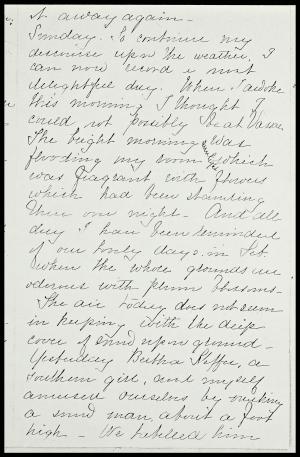 it away again -
Sunday. To continue my
discourse upon the weather, I
can now record a most
delightful day. When I awoke
this morning I thought I
could not possibly be at Vassar.
The bright morning sun was
flooding my room which
was fragrant with flowers
which had been standing
there over night - And all
day I have been reminded
of our lovely days in Feb.
when the whole grounds are
odorous with plum blossoms -
The air today does not seem
in keeping with the deep
cover of snow upon ground -
Yesterday Bertha, a
southern girl, and myself
amused ourselves by making
a snow man, about a foot
high - We him